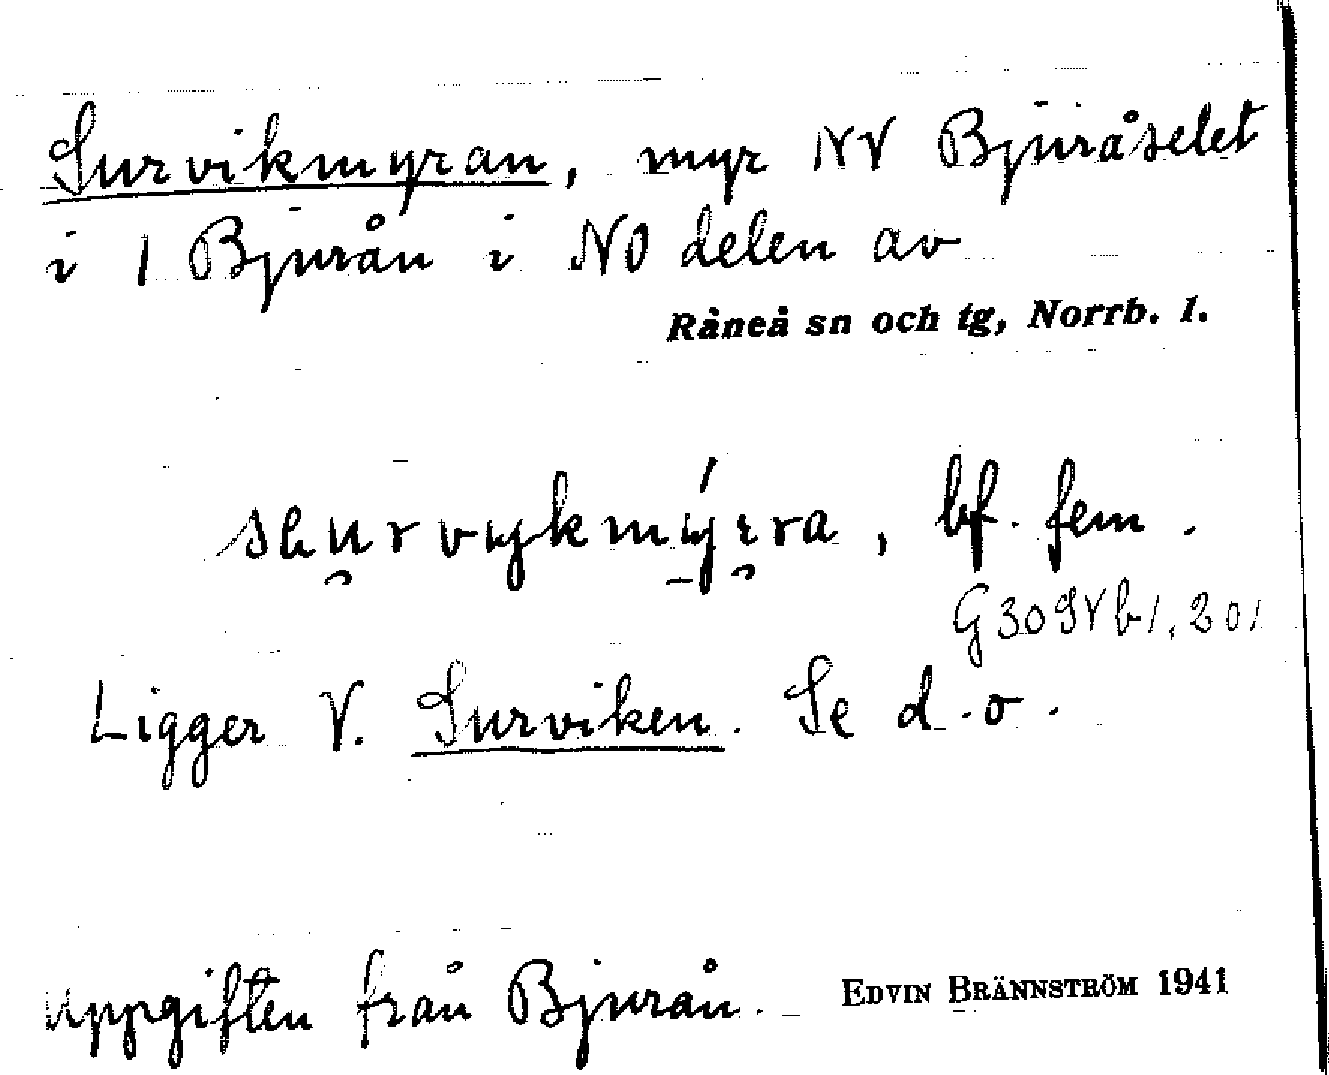 Survikmyran, myr NV Bjuråselet
i 1 Bjurån i NO delen av
Råneå sn och tg, Norrb. l.
bf. fem.
Ligger V. Surviken. Se d.o.
Uppgiften från Bjurån.
EDVIN BRÄNNSTRÖM 1941